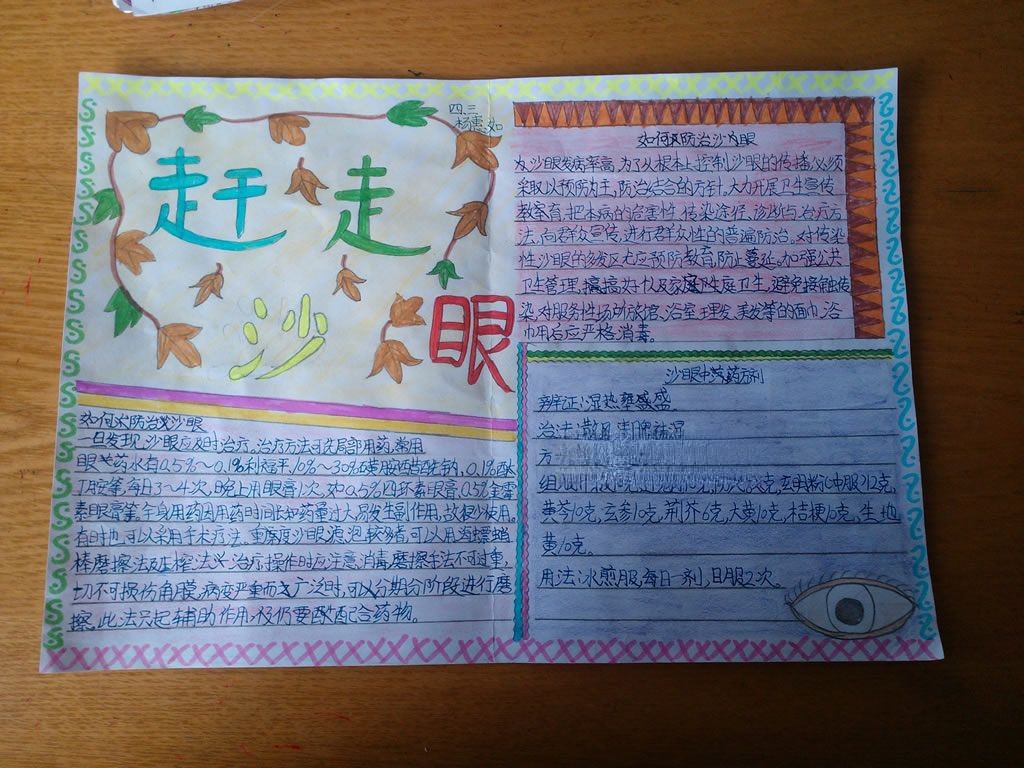 四.三
杨惠如
赶走
沙眼
如何防治沙眼
一旦发现沙眼应及时治疗,治疗方法:局部用药,常用
眼药水有0.5%~0.1%利福平,10%~30%磺胺醋酰钠,0.1%酞
丁胺等,每日3~4次,晚上用眼膏1次,如0.5%四环素眼膏,0.5%金霉
素眼膏等。全身用药因用药时间长和药量过大易发生副作用,故很少使用。
有时也可以采用手术疗法,重度沙眼滤泡较多者,可以用海螵蛸
棒磨擦法及压榨法兴治疗,操作时应注意消毒,磨擦手法不可过重,
切不可损伤角膜,病变严重而广泛时,可以分期分阶段进行磨
擦。此法只起辅助作用,仍要配合药物。
如何防治沙眼
沙眼发病率高,为了从根本上控制沙眼的传播,必须
采取以预防为主,防治结合的方针,大力开展卫生宣传
教育,把本病的危害性,传染途径,诊断与治疗方
法,向群众宣传,进行群众性的普遍防治。对传染
性沙眼的多发区尤应预防教育,防止蔓延。加强公共
卫生管理,搞好个人及家庭卫生,避免接触传
染,对服务性场所旅馆,浴室,理发,美发等的面巾,浴
巾用后应严格消毒。
沙眼中药方剂
辨证:湿热壅盛。
治法:散风清脾祛湿
方
黄芩10克,玄参10克,荆芥6克,大黄10克,桔梗10克,生地
黄10克。
用法:水煎服,每日一剂,日服2次。